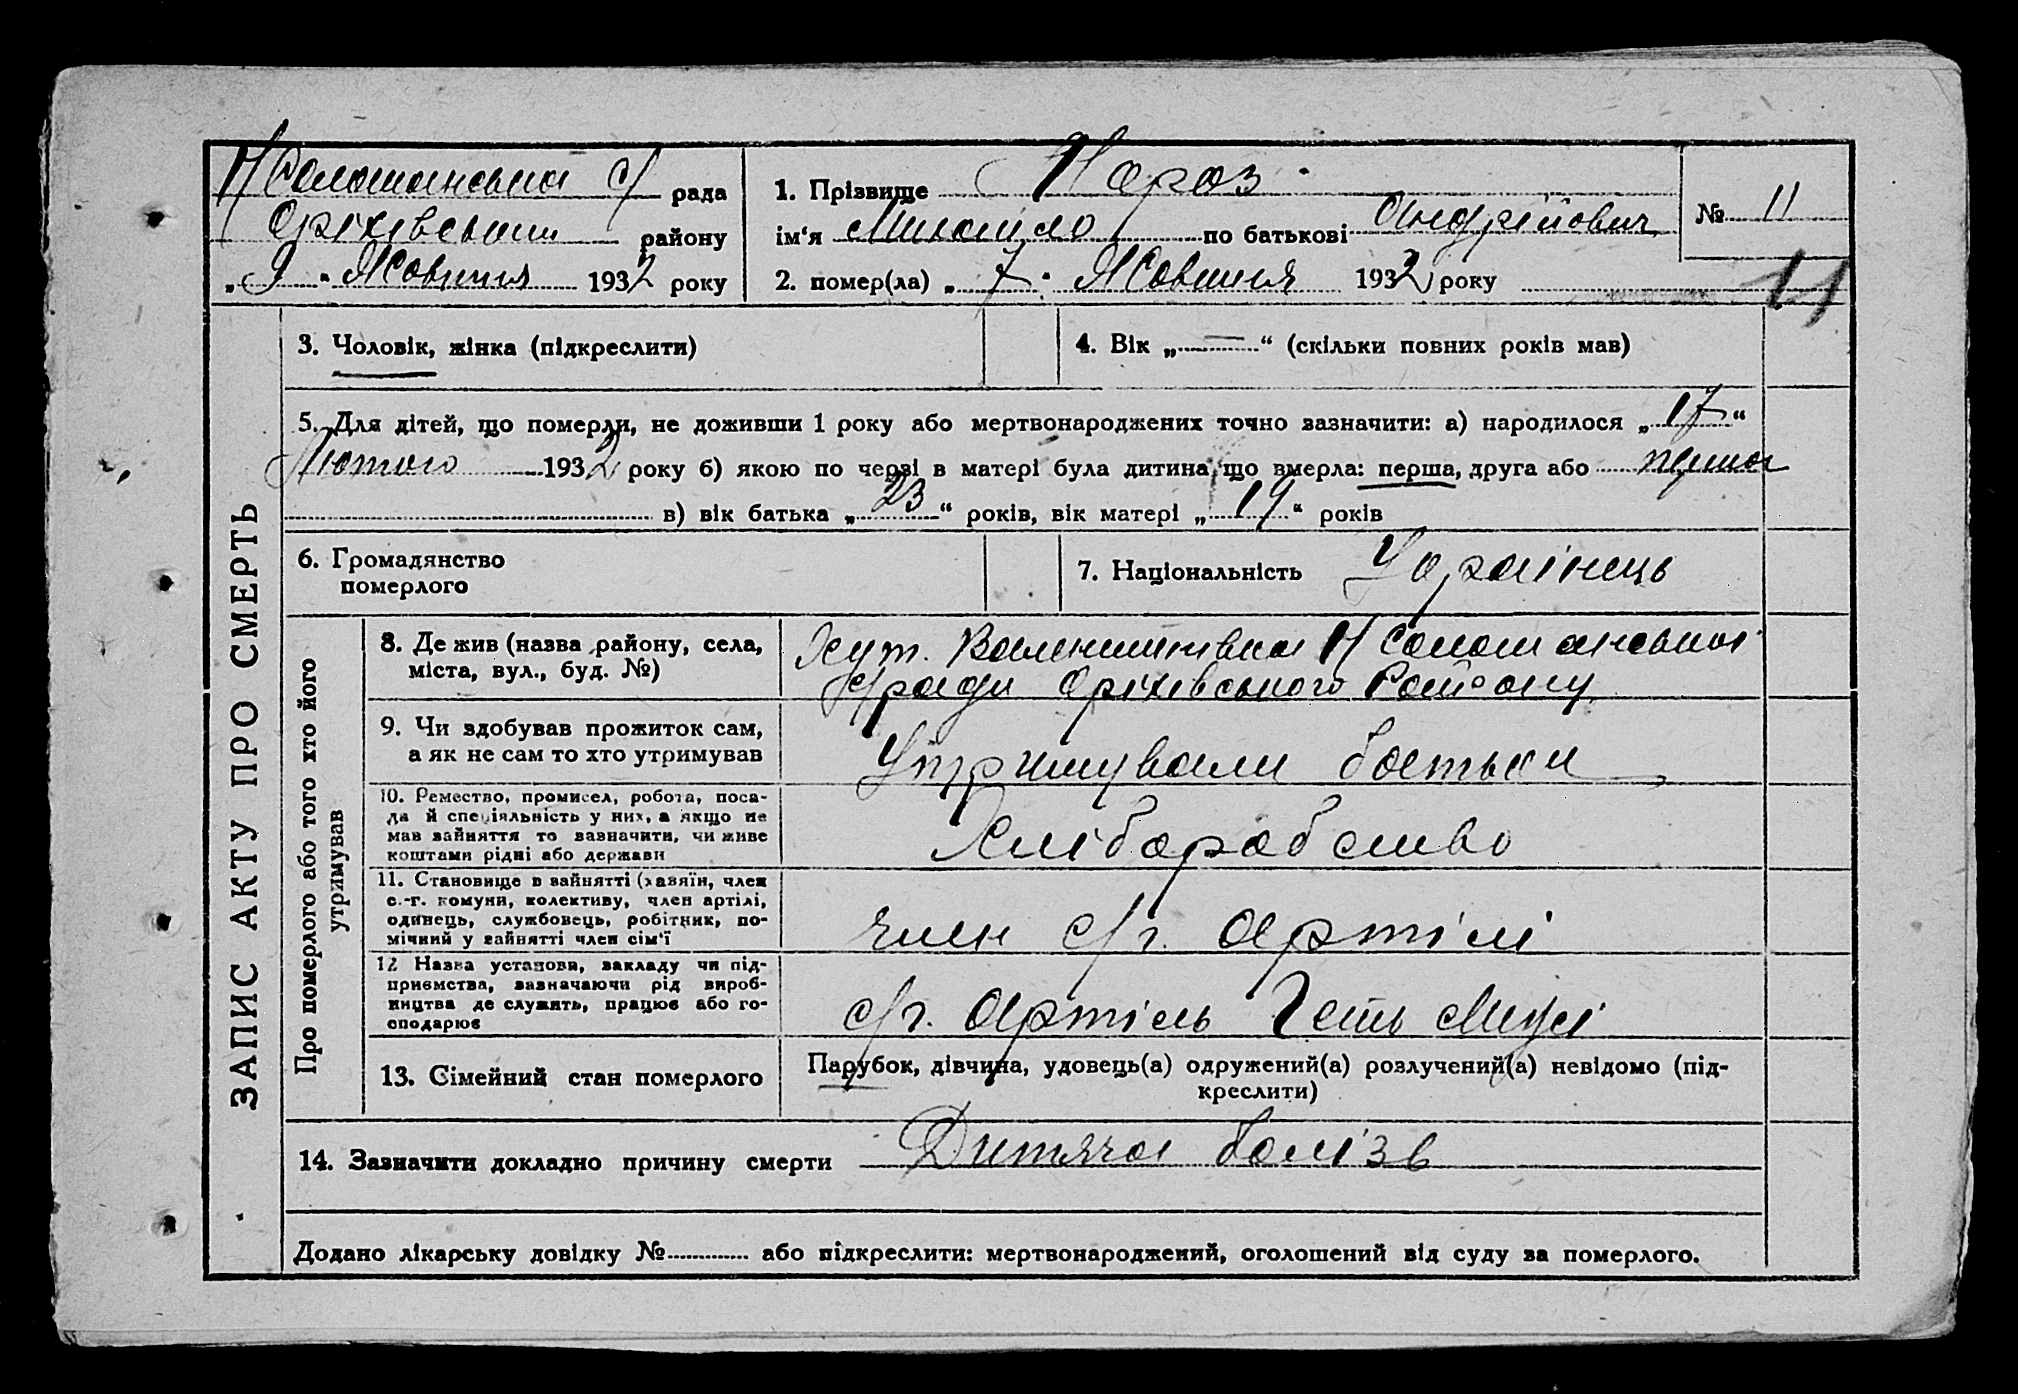 с/ рада
Оріхівського району
„9“ Жовтня 1932 року
1. Прізвище Мороз
ім‘я Михайло по батькові Андрійович
2. помер(ла) „7“ Жовтня 1932 року
№ 11
11
ЗАПИС АКТУ ПРО СМЕРТЬ
3. Чоловік, жінка (підкреслити)
4. Вік „—“ (скільки повних років мав)
5. Для дітей, що померли, не доживши 1 року або мертвонароджених точно зазначити: а) народилося „17“
Лютого 1932 року б) якою по черзі в матері була дитина, що вмерла: перша, друга або перша
в) вік батька „23“ років, вік матері „19“ років
6. Громадянство
померлого
7. Національність Українець
Про померлого або того хто його
утримував
8. Де жив (назва району, села,
міста, вул., буд. №)
Хут. Валентинівка
с/ради Оріхівського Району
9. Чи здобував прожиток сам,
а як не сам то хто утримував
Утримували батьки
10. Ремество, промисел, робота, поса-
да й спеціяльність у них, а якщо не
мав зайняття то зазначити, чи живе
коштами рідні або держави
Хліборобство
11. Становище в зайнятті (хазяїн, член
с.-г. комуни, колективу, член артілі,
одинець, службовець, робітник, по-
мічний у зайнятті член сім‘ї
член с/г. артілі
12 Назва установи, закладу чи під-
приємства, зазначаючи рід вироб-
ництва де служить, працює або го-
сподарює
с/г. артіль Геть Межі
13. Сімейний стан померлого
Парубок, дівчина, удовець(а) одружений(а) розлучений(а) невідомо (під-
креслити)
14. Зазначити докладно причину смерти Дитяча болізв
Додано лікарську довідку № або підкреслити: мертвонароджений, оголошений від суду за померлого.